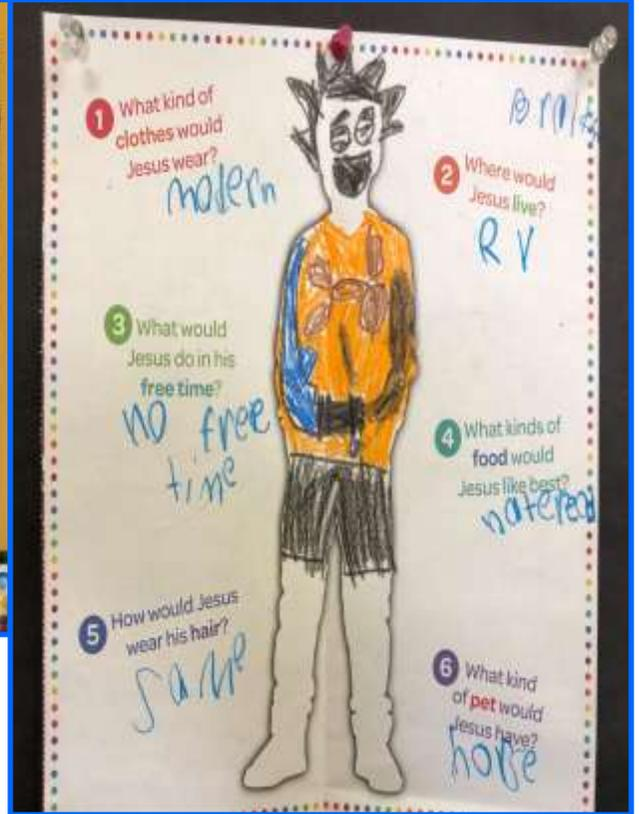 1 What kind of
clothes would
Jesus wear?
modern
2 Where would
Jesus live?
R V
3 What would
Jesus do in his
free time?
no free
time
4 What kinds of
food would
Jesus like best?
5 How would Jesus
wear his hair?
same
6 What kind
of pet would
Jesus have?
horse